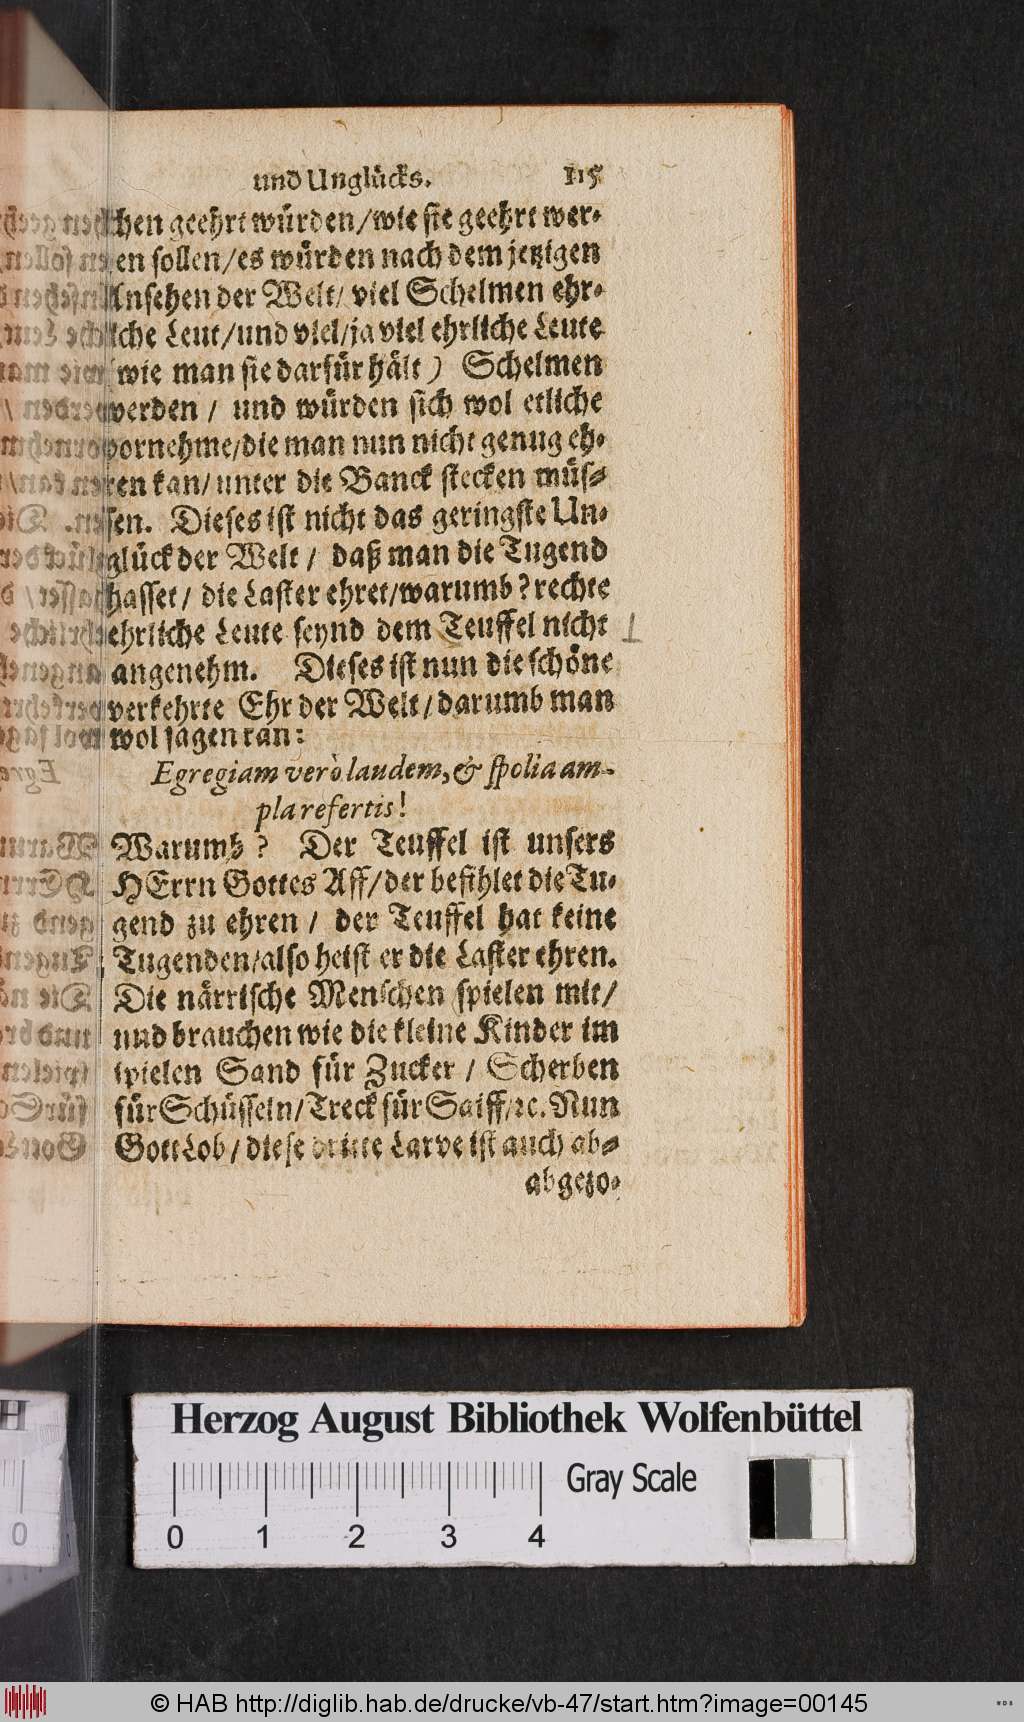 und Unglücks. 115
chen geehrt würden/wie sie geehrt wer-
en sollen/es würden nach dem jetzigen
Ansehen der Welt/ viel Schelmen ehr-
liche Leut/und viel/ja viel ehrliche Leute
(wie man sie darfür hält) Schelmen
werden / und würden sich wol etliche
vornehme/die man nun nicht genug eh-
ren kan/ unter die Banck stecken müs-
sen. Dieses ist nicht das geringste Un-
glück der Welt / daß man die Tugend
hasset/ die Laster ehret/warumb? rechte
ehrliche Leute seynd dem Teuffel nicht
angenehm. Dieses ist nun die schöne
verkehrte Ehr der Welt/darumb man
wol sagen kan:
Egregiam verò laudem, & spolia am-
pla refertis!
Warumb? Der Teuffel ist unsers
HErrn Gottes Aff/der befihlet die Tu-
gend zu ehren / der Teuffel hat keine
Tugenden/also heist er die Laster ehren.
Die närrische Menschen spielen mit/
und brauchen wie die kleine Kinder im
spielen Sand für Zucker / Scherben
für Schüsseln/Treck für Saiff/ꝛc. Nun
Gott Lob/ diese dritte Larve ist auch ab-
abgezo-
Herzog August Bibliothek Wolfenbüttel
Gray Scale
0 1 2 3 4
© HAB http://diglib.hab.de/drucke/vb-47/start.htm?image=00145